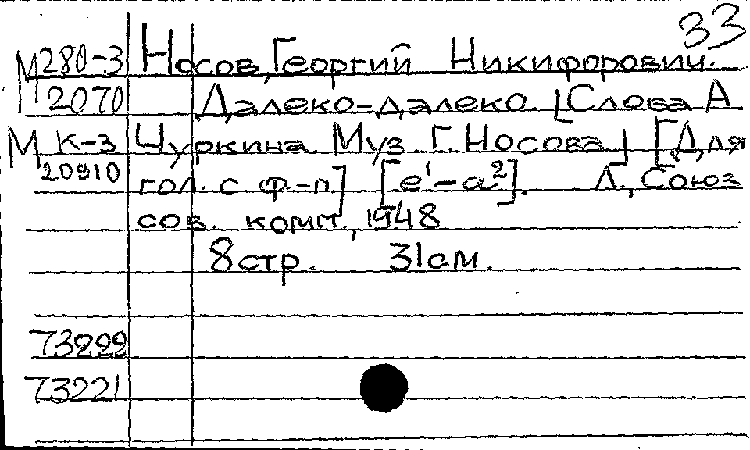 33
М 280-3 Носов, Георгий Никифорович.
2070 Далеко-далеко. [Слова А
М К-3 Чуркина Муз. Г. Носова] [Для
20910 гол. с ф-п.] [e¹-a²]. Л., Союз
сов. комп., 1948
8 стр. 31 см.
73222
73221